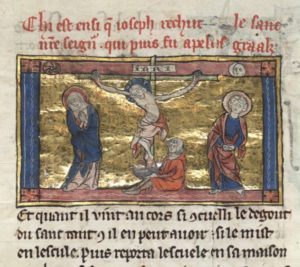 Chi est ensi q̄ ioseph rechut le sanc
nr̄e seignr̄. qui puis fu apeles graalz
INRI
Et quant il vint au cors si queilli le degout
du sanc tant q il en peut auoir. si le mist
en lescule. puis reporta lescuele en sa maison